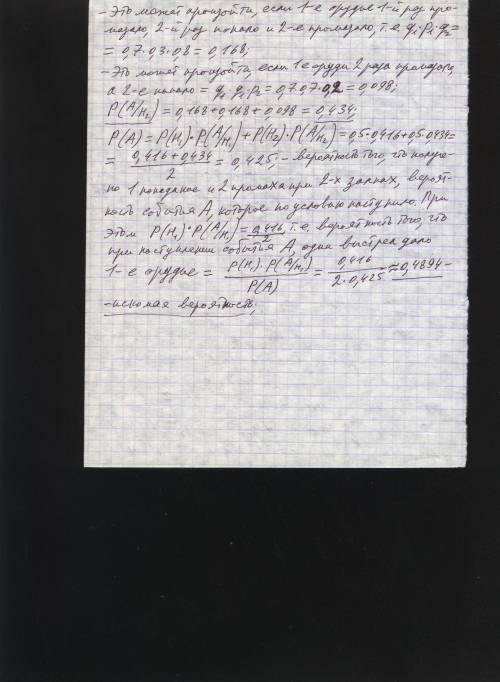 - Это может произойти, если 1-е орудие 1-й раз про-
мазало, 2-й раз попало и 2-е промазало, т.е. q₁·p₁·q₂=
= 0,7·0,3·0,8 = 0,168;
- Это может произойти, если 1-е орудие 2 раза промазало,
а 2-е попало = q₁·q₁·p₂ = 0,7·0,7·0,2 = 0,098;
P(A/H₂) = 0,168+0,168+0,098 = 0,434;
P(A) = P(H₁)·P(A/H₁) + P(H₂)·P(A/H₂) = 0,5·0,416+0,5·0,434=
= (0,416+0,434)/2 = 0,425; - вероятность того, что получе-
но 1 попадание и 2 промаха при 2-х залпах, вероят-
ность события A, которое по условию наступило. При
этом P(H₁)·P(A/H₁) = 0,416/2, т.е. вероятность того, что
при наступлении события A один выстрел дало
1-е орудие = P(H₁)·P(A/H₁)/P(A) = 0,416/2·0,425 ≈ 0,4894 -
- искомая вероятность;